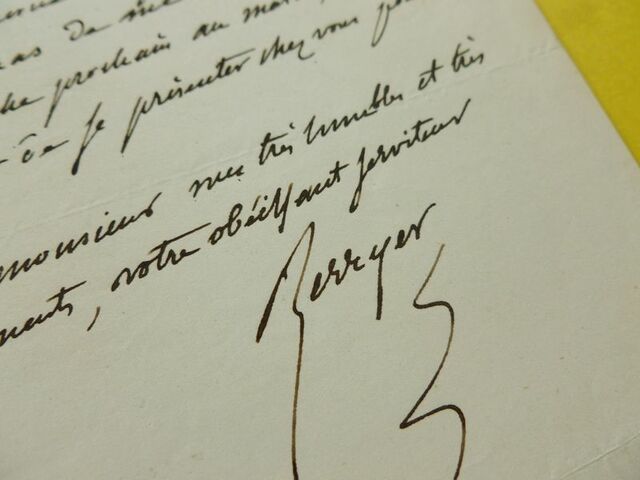 de me
prochain au mat
de se présenter chez vous po
monsieur mes très humbles et très
ments, votre obéissant serviteur
Berryer